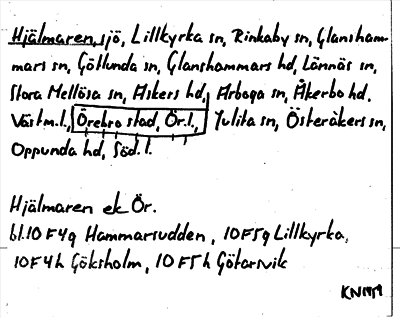 Hjälmaren, sjö, Lillkyrka sn, Rinkaby sn, Glansham-
mars sn, Götlunda sn, Glanshammars hd, Lännäs sn,
Stora Mellösa sn, Askers hd, Arboga sn, Åkerbo hd.
Västm.l., Örebro stad, Ör.l., Julita sn, Österåkers sn,
Oppunda hd, Söd.l.
Hjälmaren ek Ör.
bl.10F4g Hammarsudden, 10F5g Lillkyrka,
10F4h Göksholm, 10F5h Götarsvik